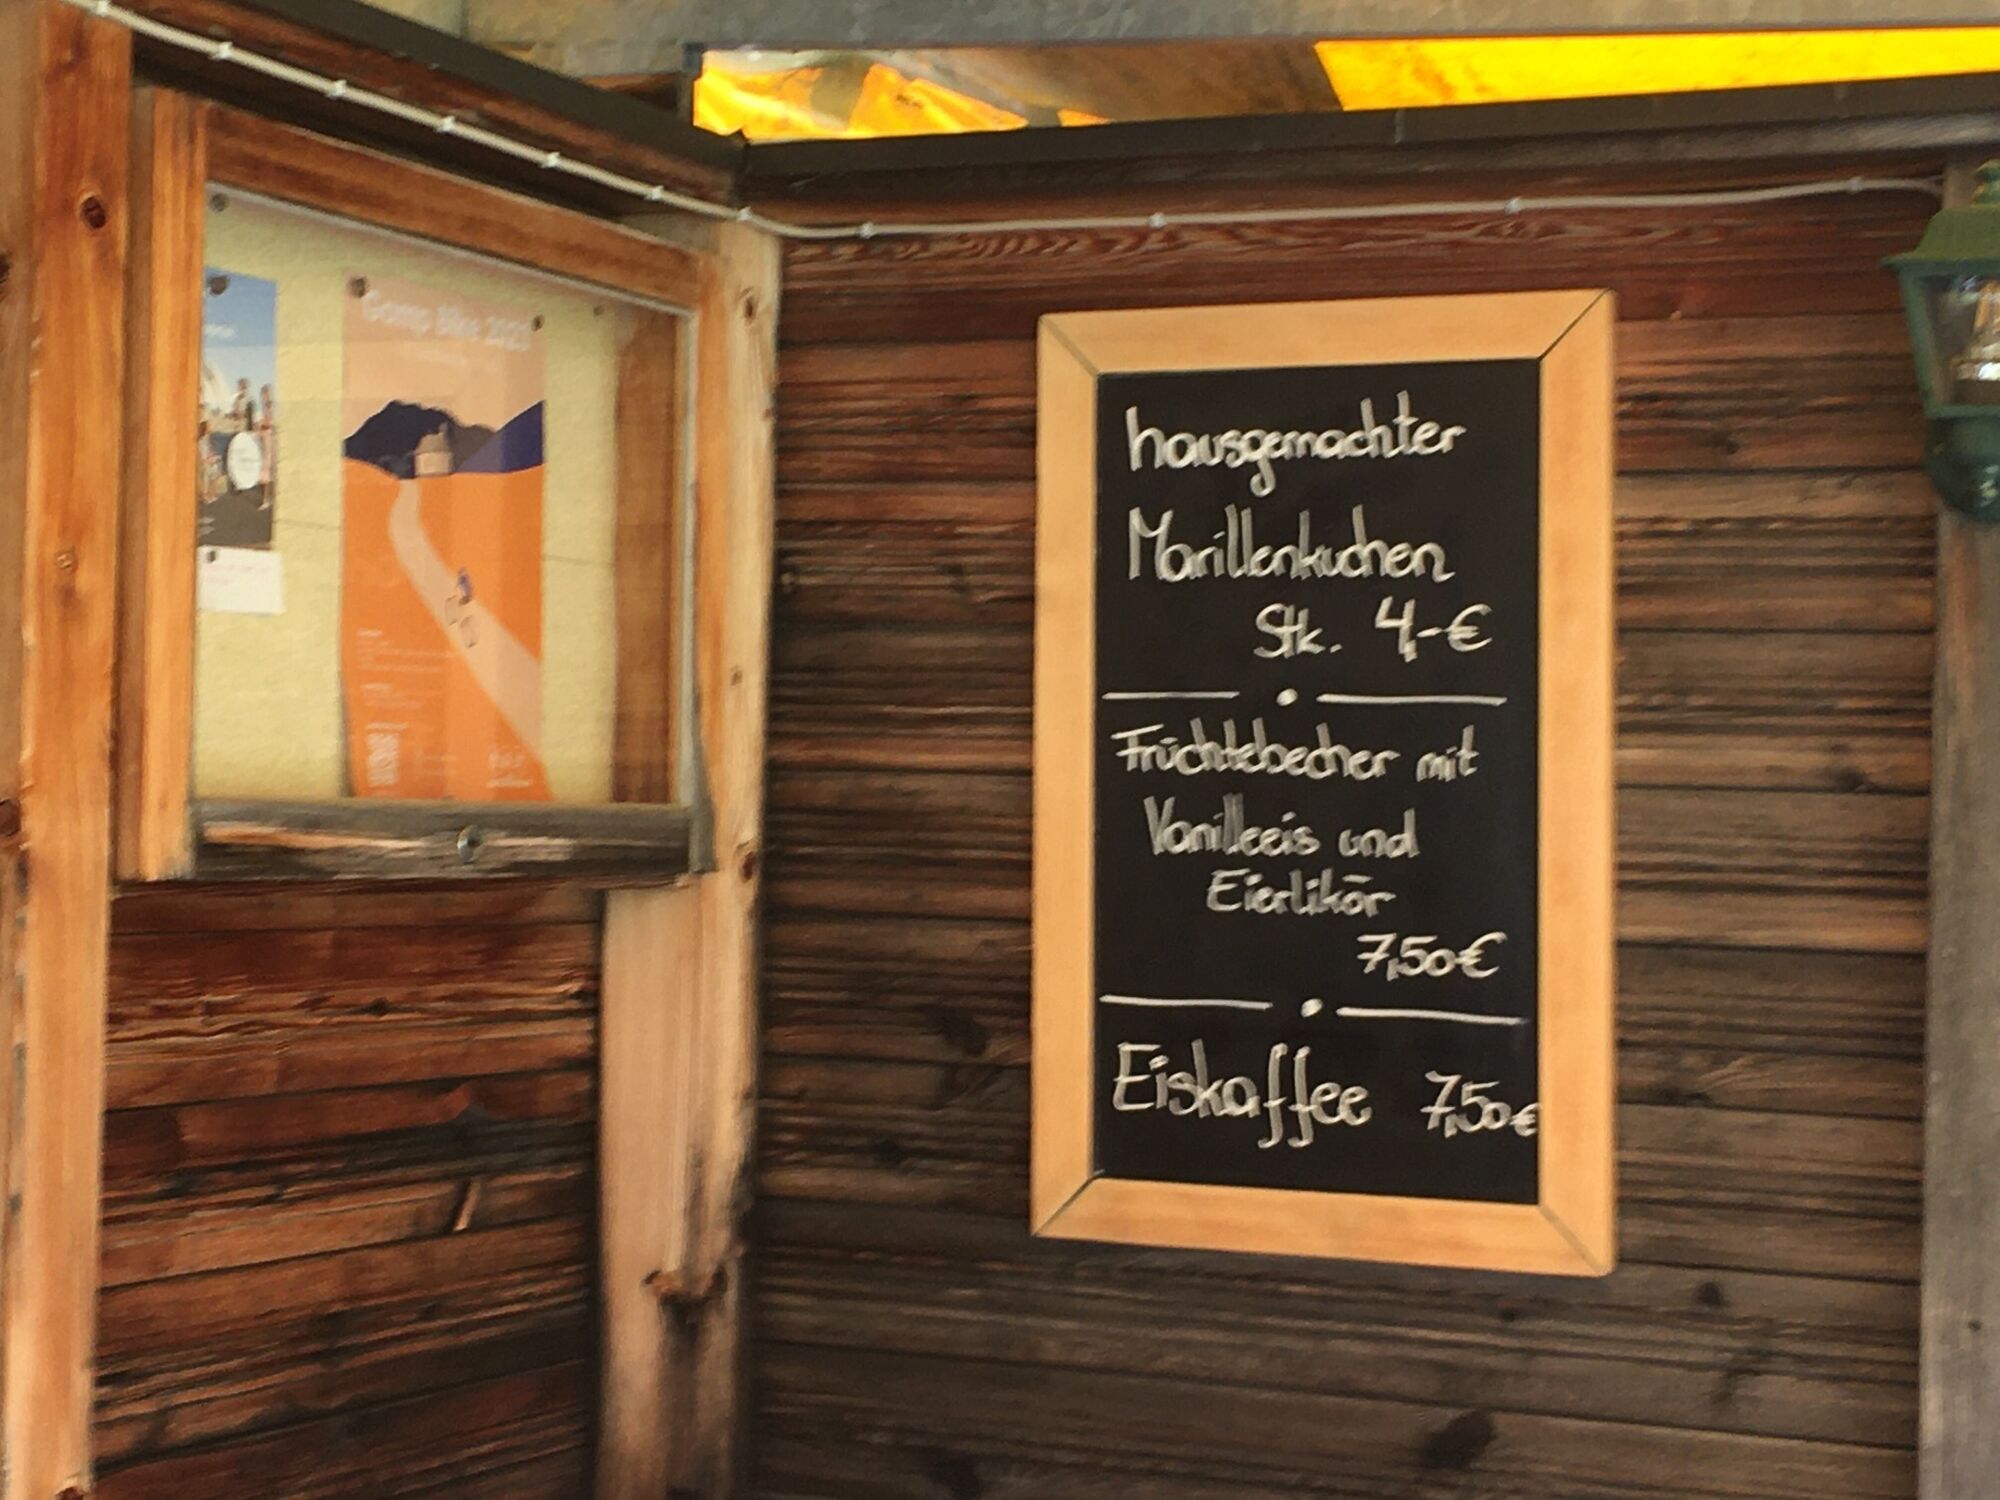 Gamp Bike 2023
hausgemachter
Marillenkuchen
Stk. 4,-€
Früchtebecher mit
Vanilleeis und
Eierlikör
7,50€
Eiskaffee 7,50€